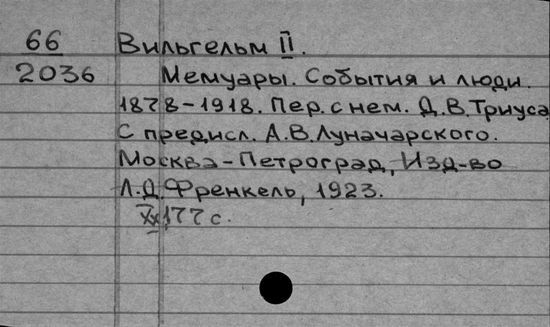 66 Вильгельм II.
2036 Мемуары. События и люди.
1878-1918. Пер. с нем. Д.В.Триуса
С предисл. А.В.Луначарского.
Москва-Петроград, Изд-во
Л.Д.Френкель, 1923.
XX,177 с.